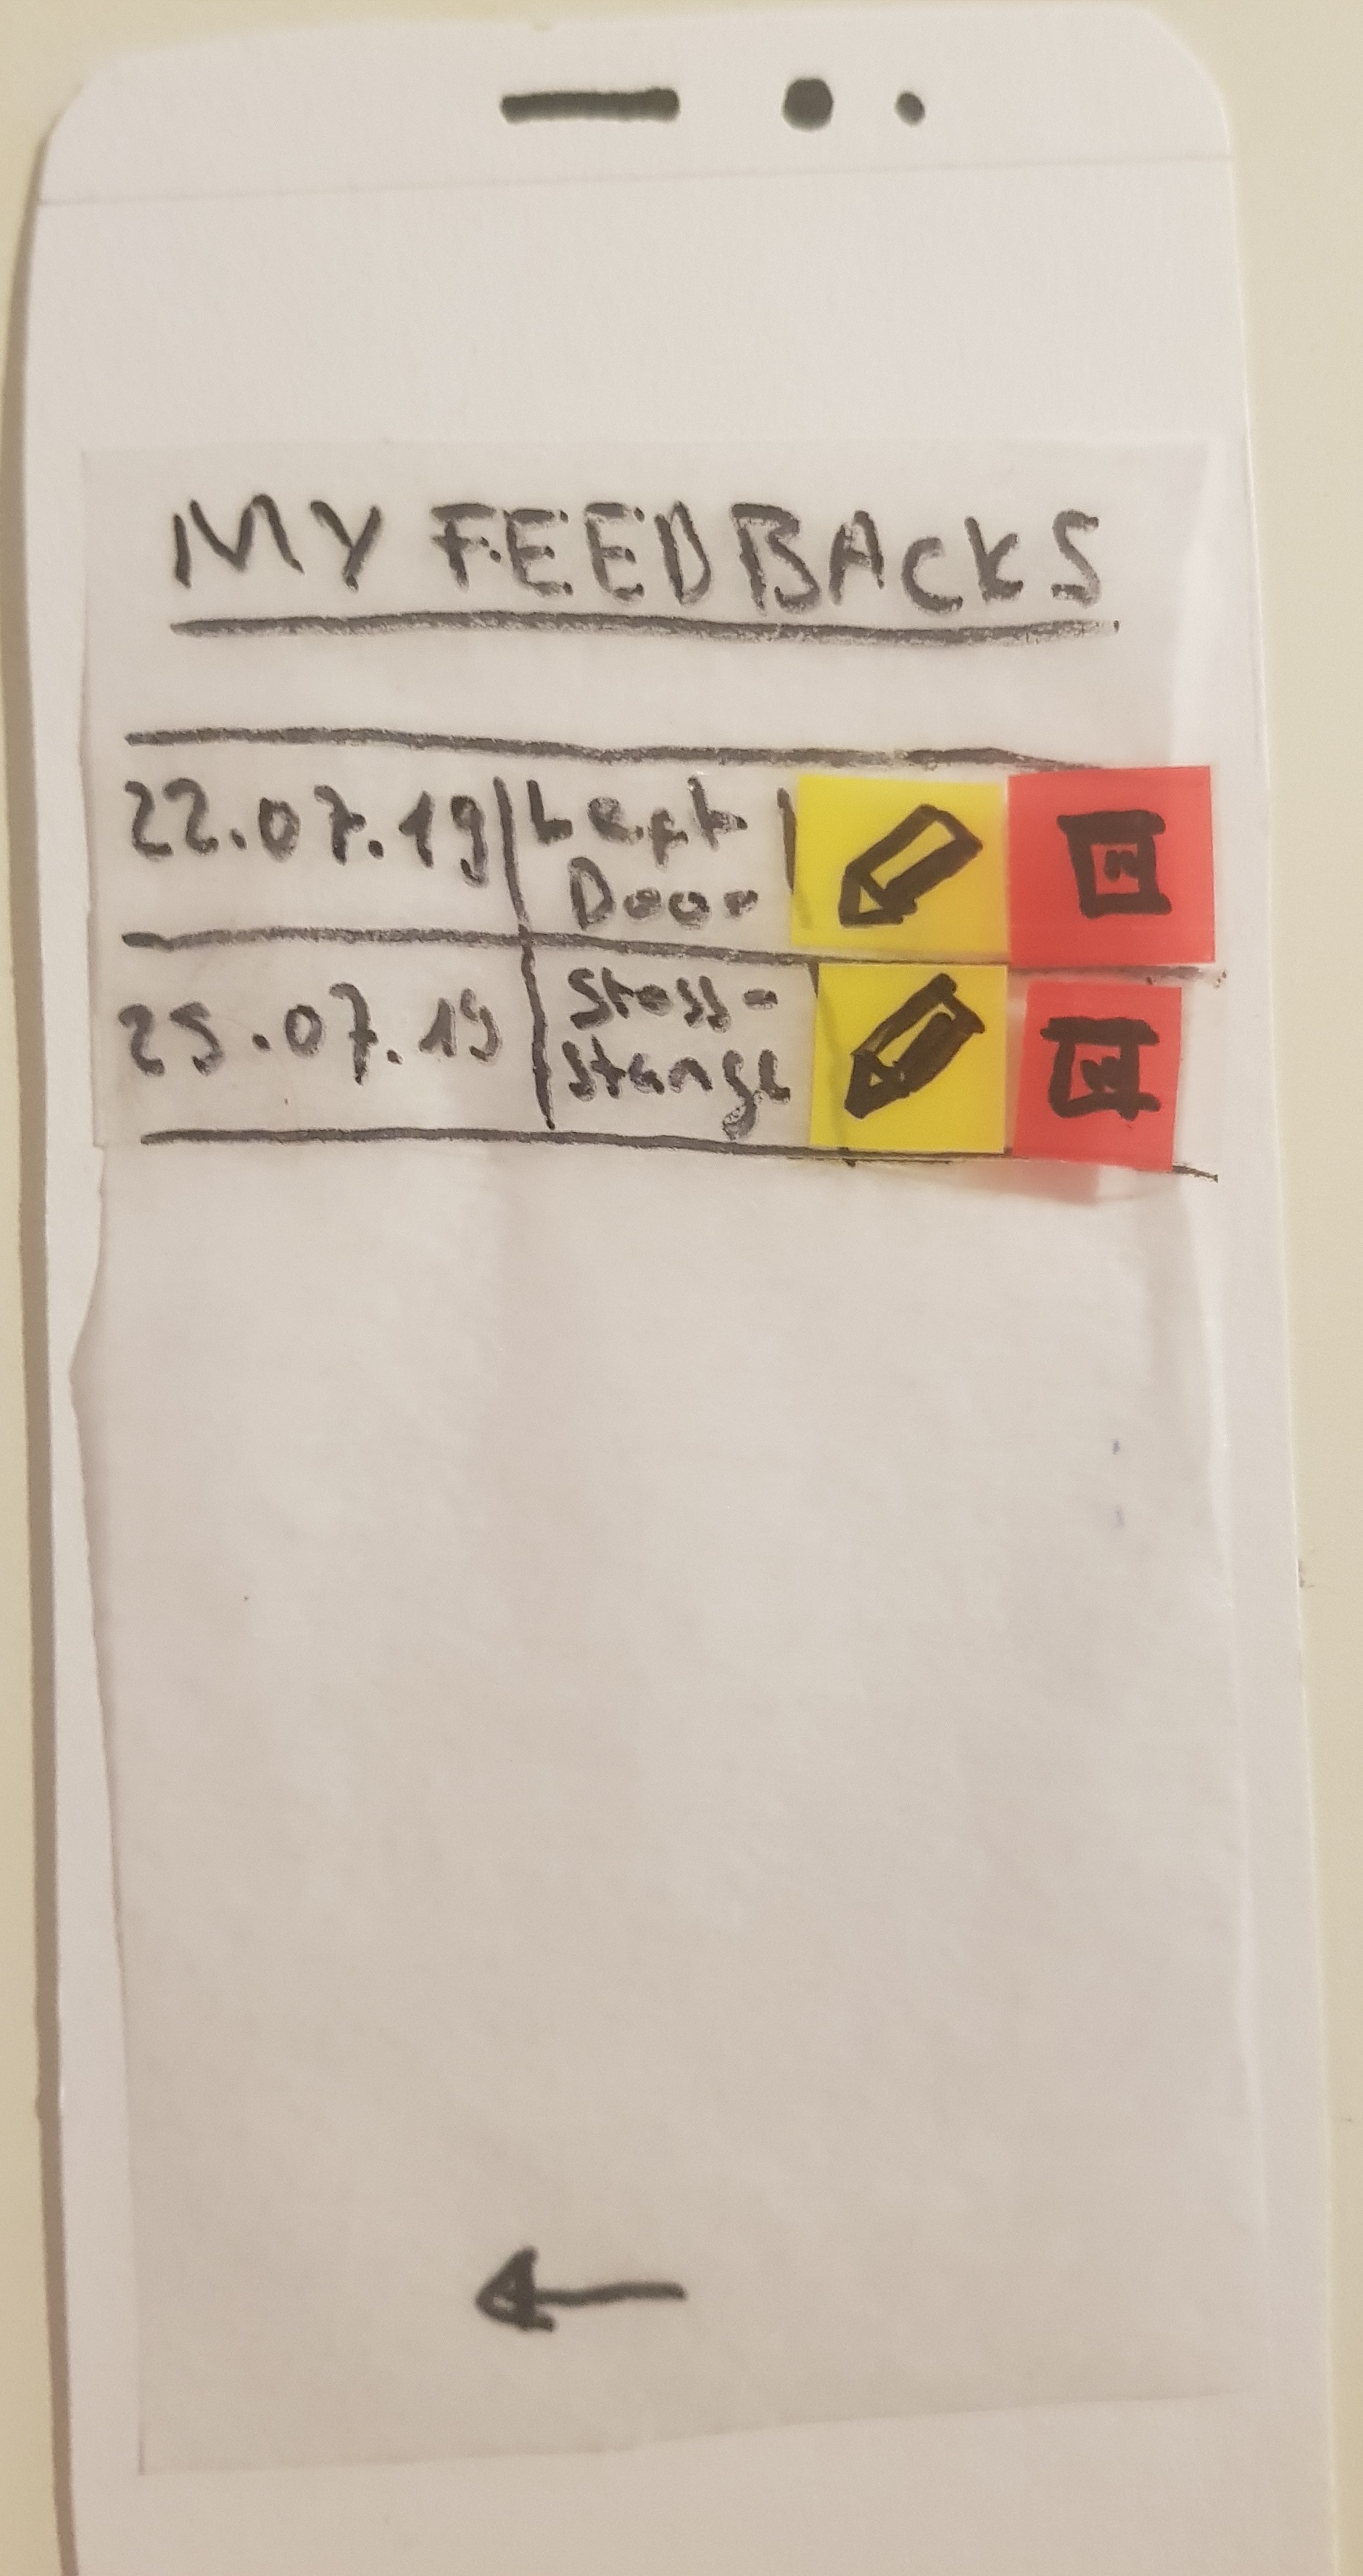 MY FEEDBACKS
22.07.19
Left
Door
25.07.19
Stoss-
stange